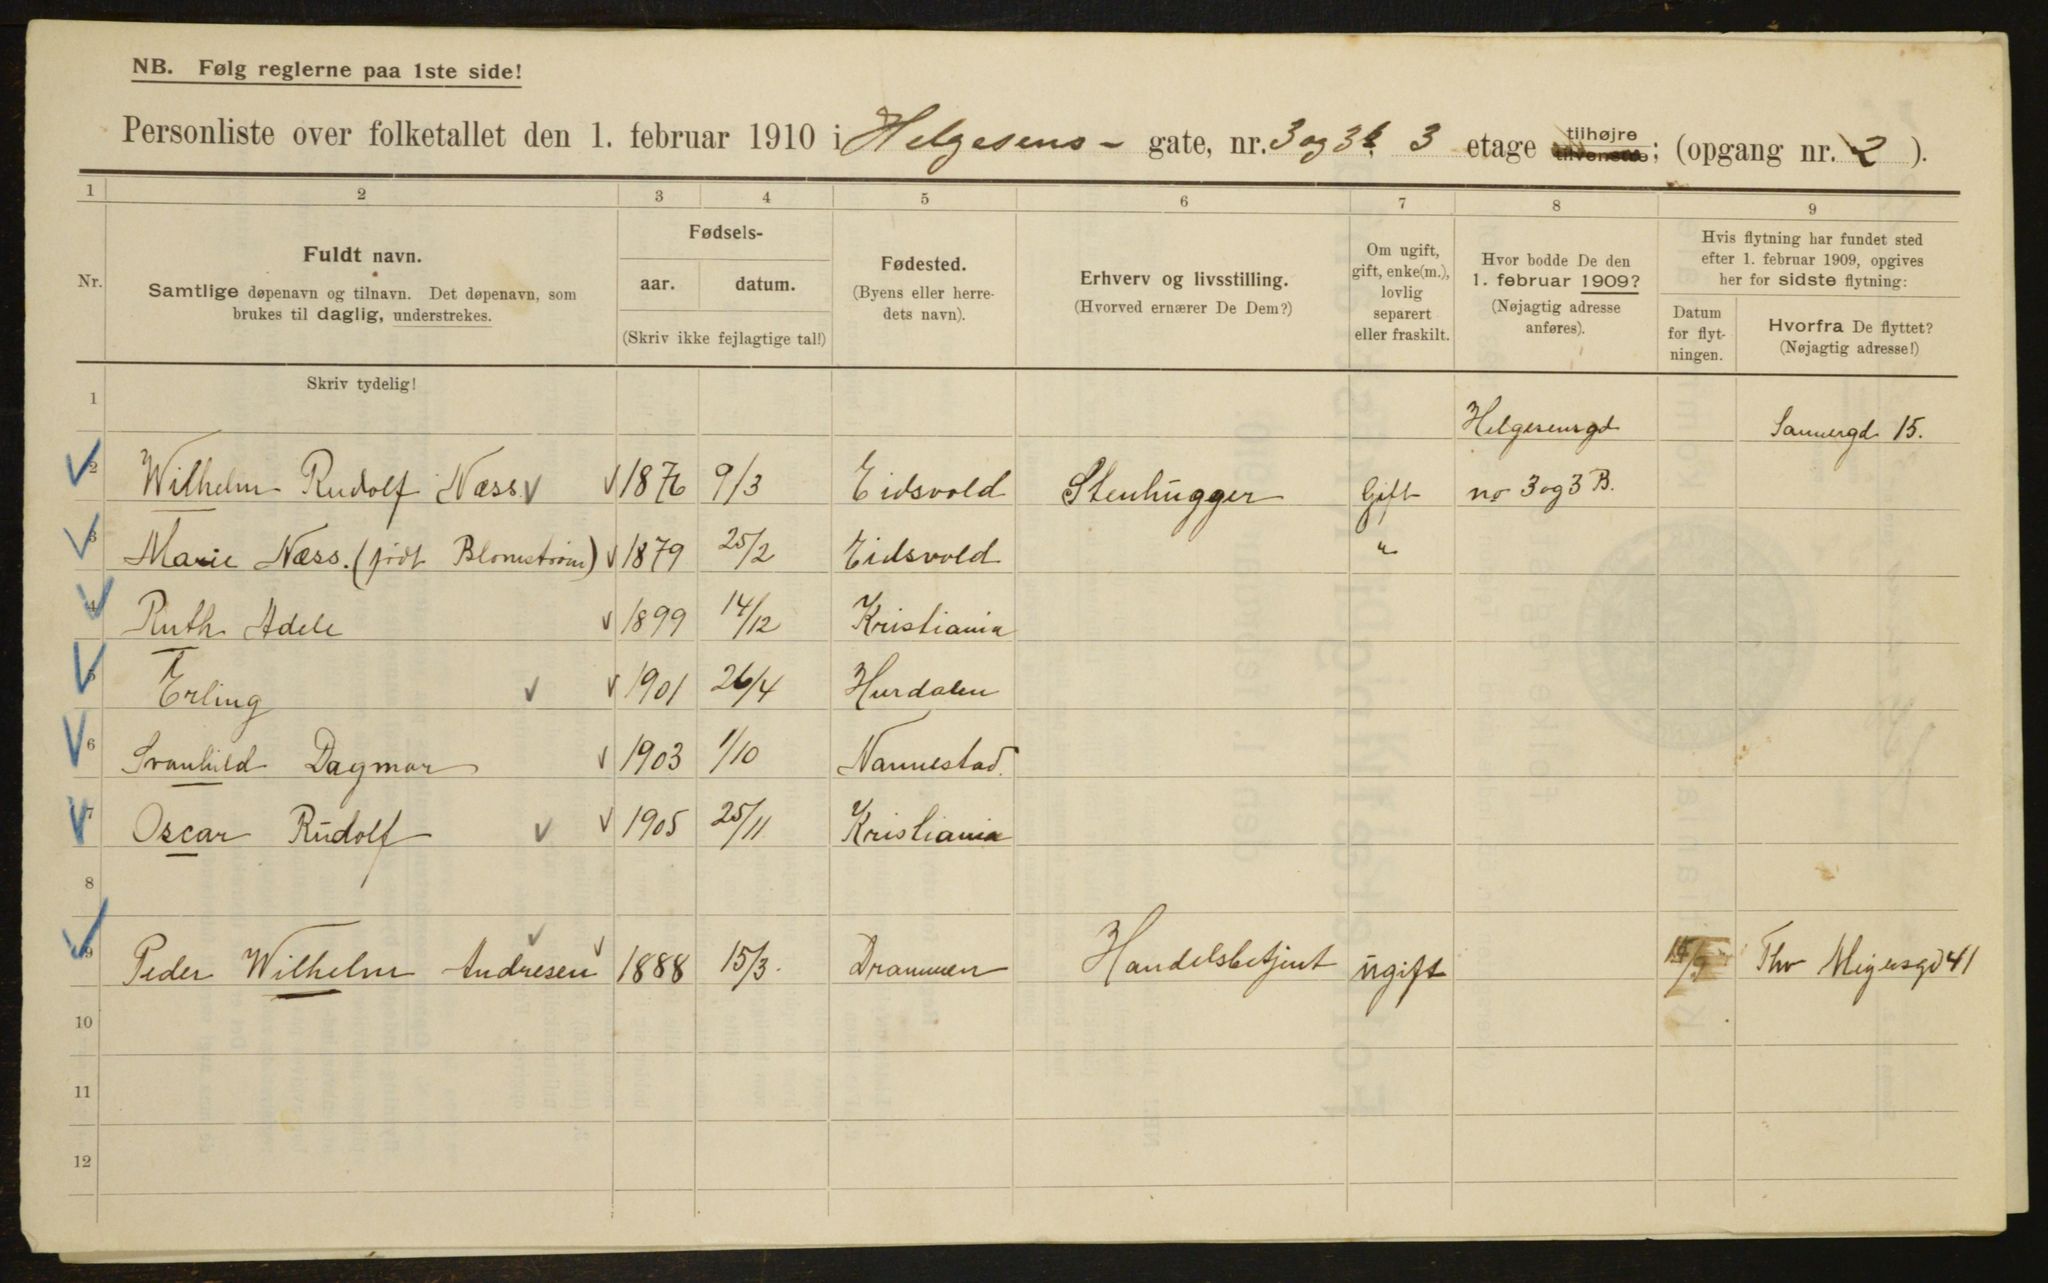 NB. Følg reglerne paa 1ste side!
Personliste over folketallet den 1. februar 1910 i Helgesens- gate, nr. 3 og 3b, 3 etage tilhøjre tilvenstre; (opgang nr. 2 ).
1 2 3 4 5 6 7 8 9
Nr.
Fuldt navn.
Samtlige døpenavn og tilnavn. Det døpenavn, som
brukes til daglig, understrekes.
Fødsels-
aar. datum.
(Skriv ikke fejlagtige tal!)
Fødested.
(Byens eller herre-
dets navn).
Erhverv og livsstilling.
(Hvorved ernærer De Dem?)
Om ugift,
gift, enke(m.),
lovlig
separert
eller fraskilt.
Hvor bodde De den
1. februar 1909?
(Nøjagtig adresse
anføres).
Hvis flytning har fundet sted
efter 1. februar 1909, opgives
her for sidste flytning:
Datum
for flyt-
ningen.
Hvorfra De flyttet?
(Nøjagtig adresse!)
Skriv tydelig!
1 Helgesensgd Sannergd 15.
2 Wilhelm Rudolf Næss 1876 9/3 Eidsvold Stenhugger Gift no 3 og 3 B.
3 Marie Næss. (født Blomstrøm) 1879 25/2 Eidsvold "
4 Ruth Adele 1899 14/12 Kristiania
5 Erling 1901 26/4 Hurdalen
6 Svanhild Dagmar 1903 1/10 Nannestad.
7 Oscar Rudolf 1905 25/11 Kristiania
8
9 Peder Wilhelm Andresen 1888 15/3. Drammen Handelsbetjent ugift 15/9 Thv Meyersgd 41
10
11
12